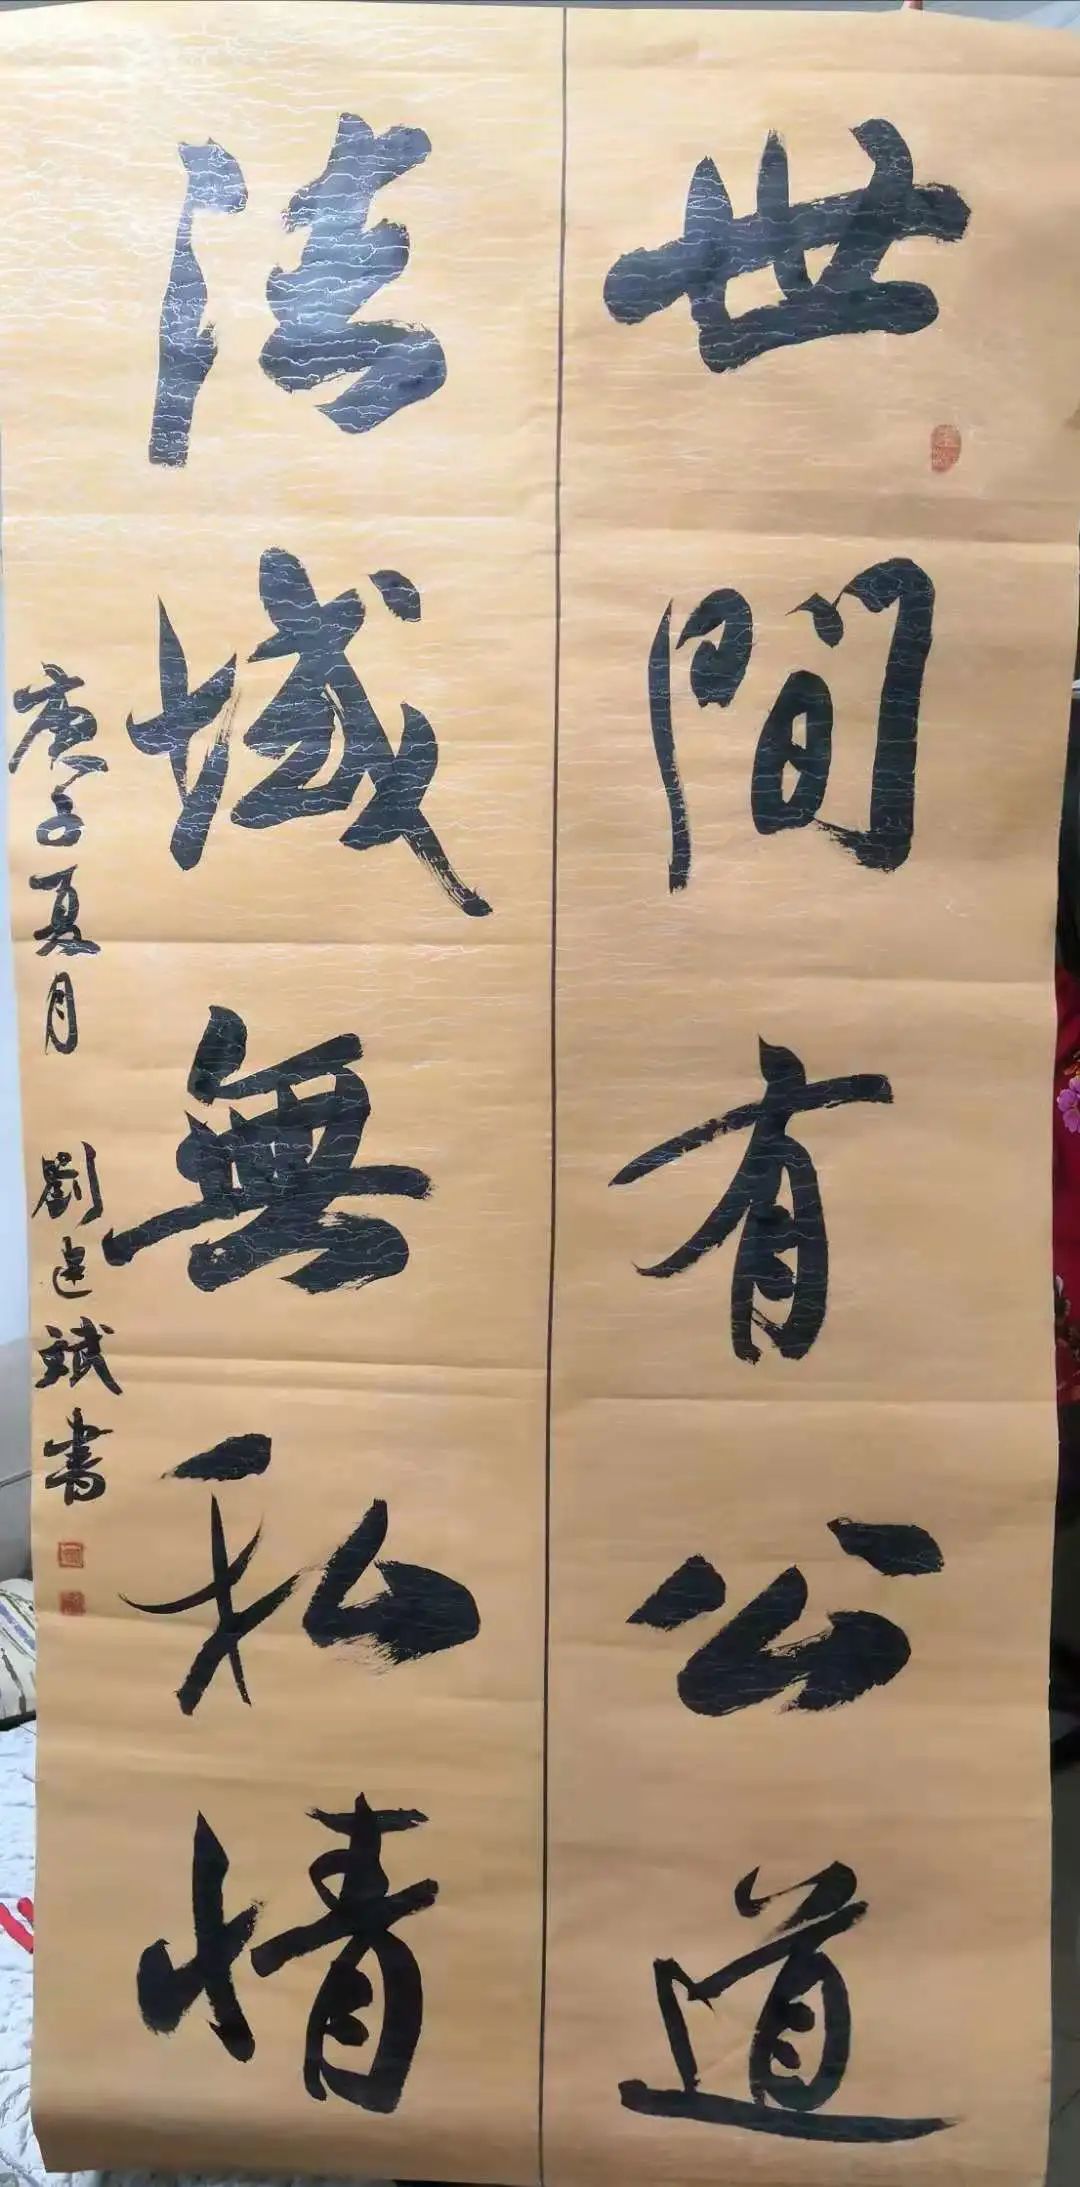 世間有公道
法域無私情
庚子夏月 劉建斌書